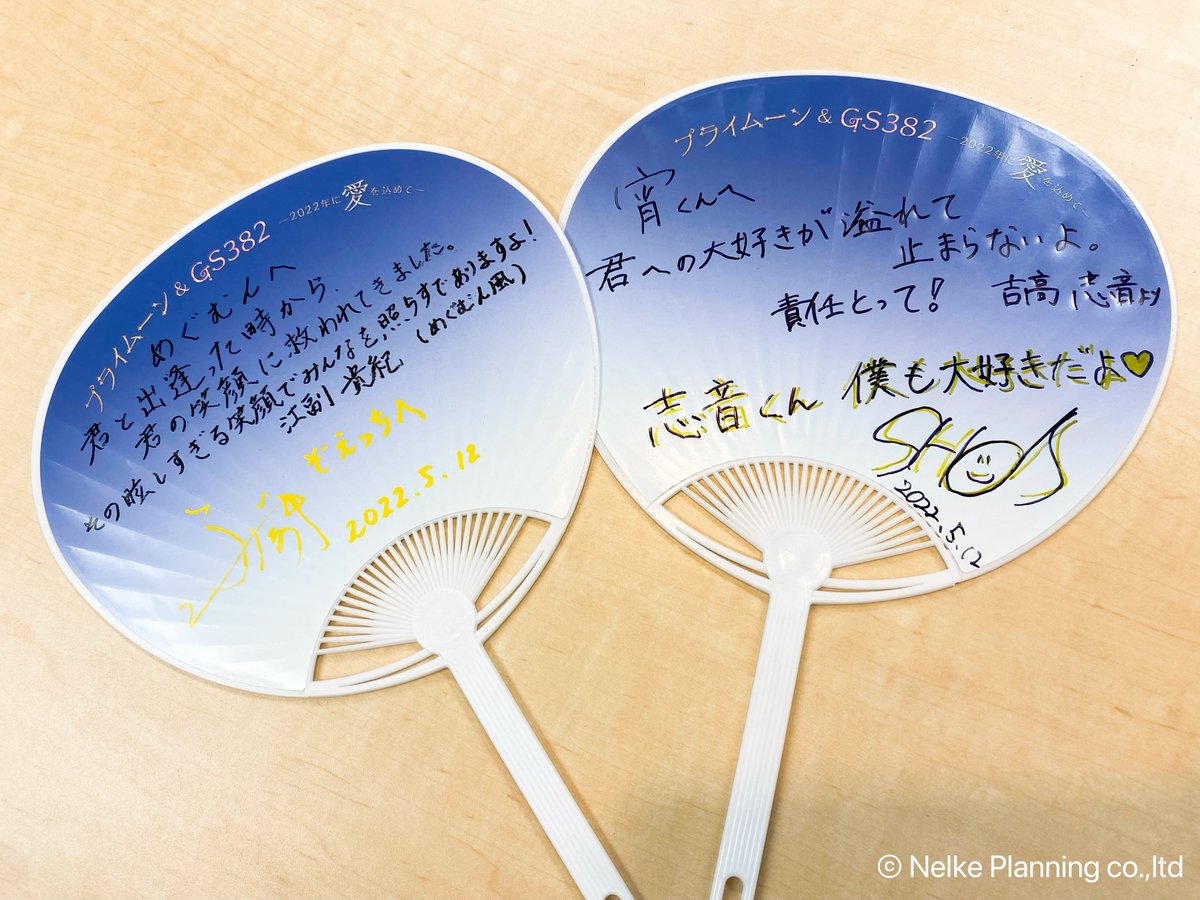 プライムーン&GS382 ー2022年に愛を込めてー
めぐむんへ
君と出逢った時から、
君の笑顔に救われてきました。
その眩しすぎる笑顔でみんなを照らすでありますよ!
江副 貴紀 (めぐむん風)
ぞえっちへ
2022.5.12
プライムーン&GS382 ー2022年に愛を込めてー
宵くんへ
君への大好きが溢れて
止まらないよ。
責任とって!
吉高 志音より
志音くん 僕も大好きだよ♥
2022.5.12
© Nelke Planning co.,ltd